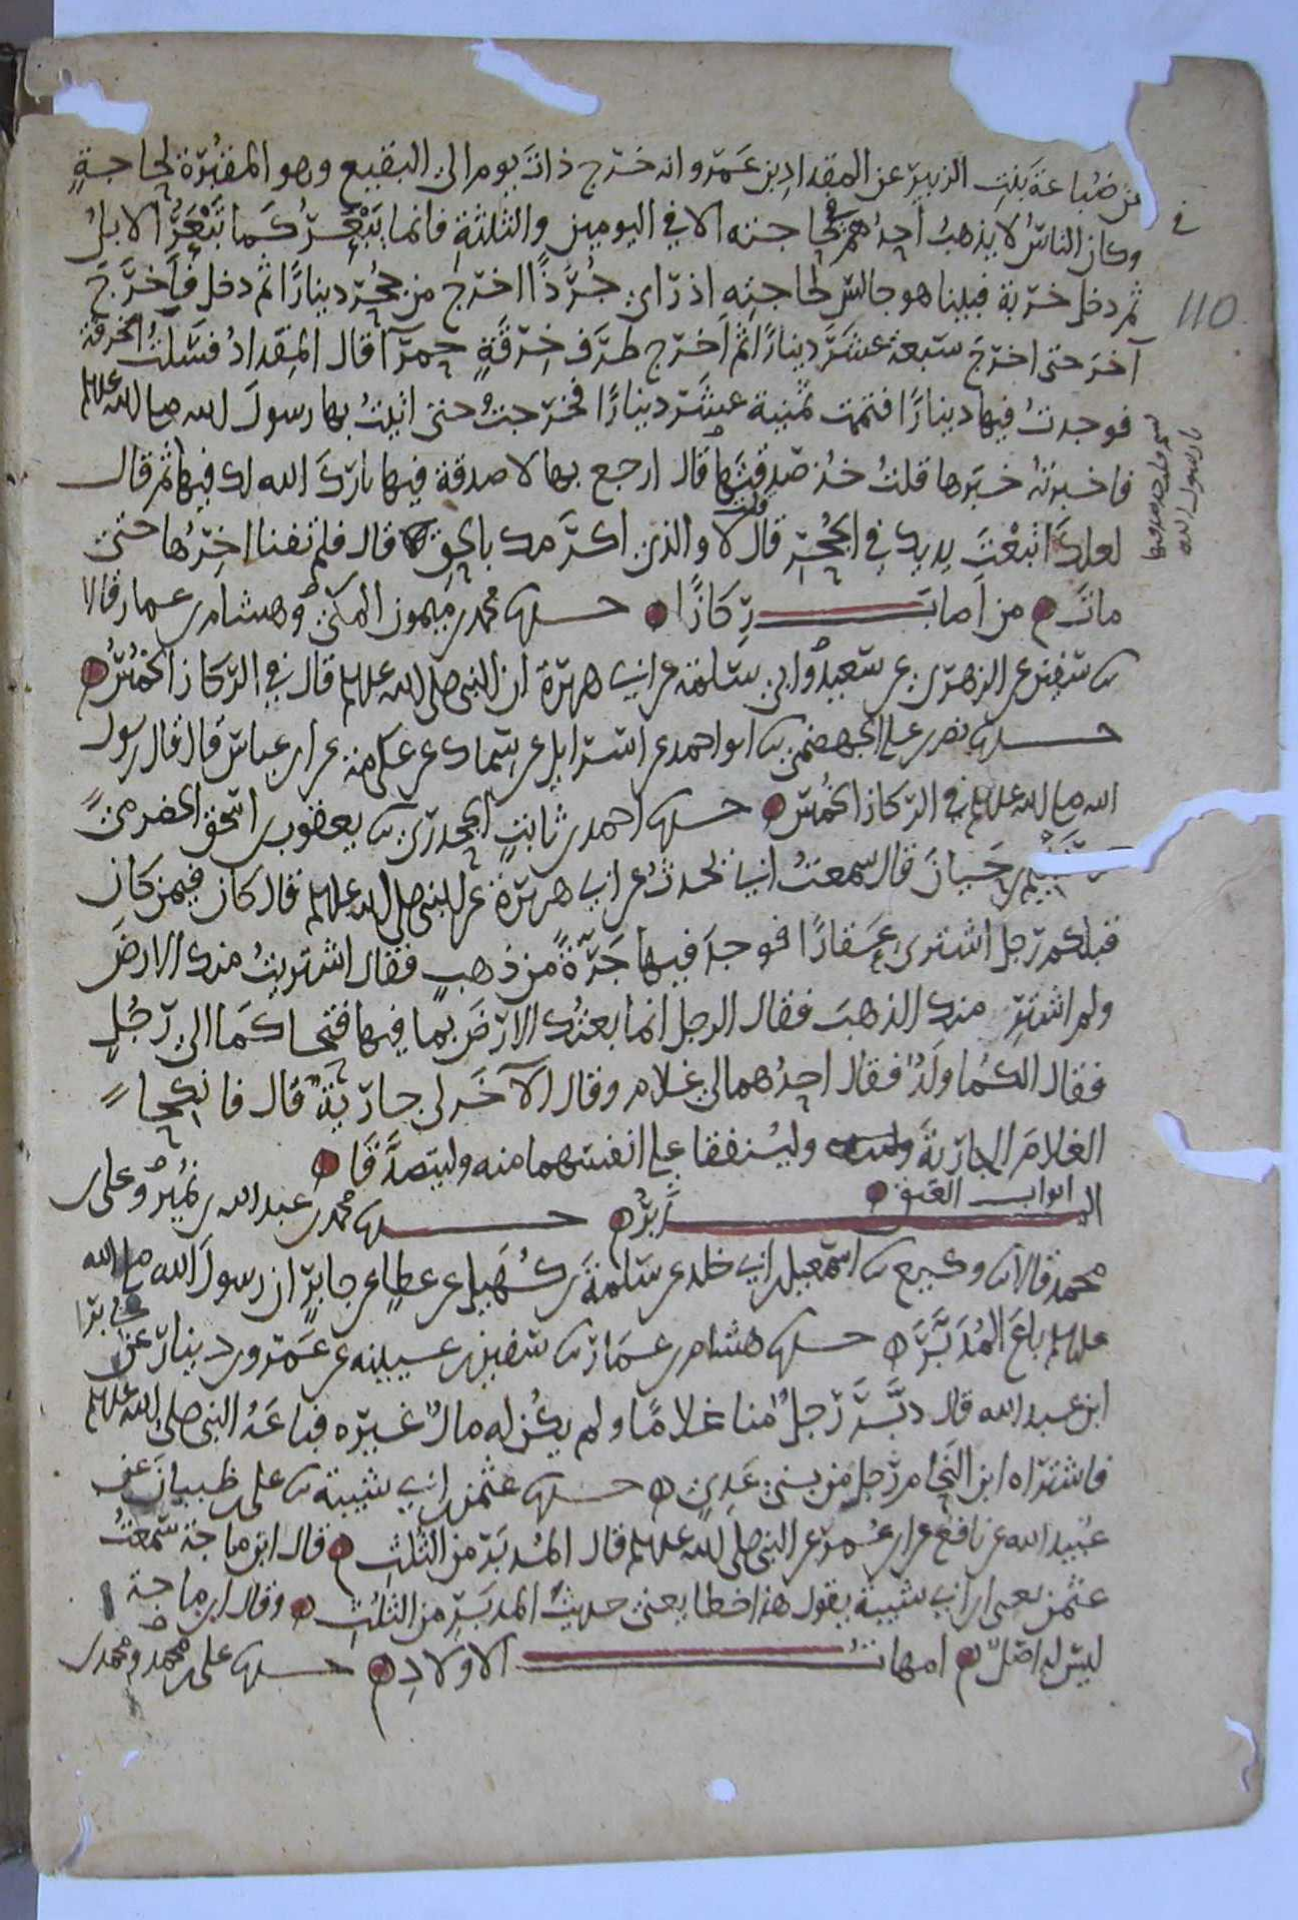 عن ضُباعةَ بنتِ الزبير عن المقدادِ بن عَمرو انه خرج ذاتَ يوم الى البقيع وهو المقبُرة لحاجةٍ
وكان الناسُ لا يذهبُ احدُهم في حاجته الا في اليومين والثلثةِ فانما يَبْعَرُ كَما تَبْعَرُ الابلُ
ثم دخل خربة فبينا هو جالسٌ لحاجتِه اذ رأى جُرَذًا اخرج من جُحْرٍ دينارًا ثم دخل فاَخرَجَ
آخرَ حتى اخرجَ سبعة عشَرَ دينارًا ثم اَخرج طرَف خِرقَةٍ حمرآ قال المِقدادُ فسَللتُ الخرقة
فوجدتُ فيها دينارًا فتمّت ثمنية عشَر دينارًا فخرجتُ حتى اتيتُ بها رسولَ الله صلى الله عليه وسلم
فاخبرتهُ خبَرها قلتُ خُذ صَدقتَها قال ارجع بها لا صدقة فيها باركَ الله لك فيها ثم قال
لعلكَ اتبعْتَ يدك في الجُحْرِ قال قلت لا والذي اكرَمك بالحقِ قال فلم تفنا آخِرُها حتى
ماتَ ۝ من اَصابَ رِكازًا ۝ حدثنا محمد بن ميمون المكي وهشام بن عمار قالا
ثنا سفين عن الزهري عن سعيد وابي سلمة عن ابي هريرة ان النبي صلى الله عليه وسلم قال في الركاز الخمُسُ ۝
حدثنا نصر بن علي الجهضمي ثنا ابو احمد عن اسرايل عن سماك عن عكرمة عن ابن عباس قال قال رسول
الله صلى الله عليه وسلم في الركاز الخمُس ۝ حدثنا احمد بن ثابتٍ الجحدري ثنا يعقوب بن اسحق الحضرمي
سليم بن حَيانَ قال سمعتُ ابي يحدثُ عن ابي هريرة عن النبي صلى الله عليه وسلم قال كان فيمن كان
قبلكم رجل اشترى عَقارًا فوجدَ فيها جَرَّةً من ذهبٍ فقال اشتريتُ منك الارضَ
ولم اشترِ منك الذهبَ فقال الرجل انما بعتُك الارضَ بما فيها فتحاكَما الى رجُلٍ
فقال الكُما ولَدٌ فقال احدُهما لي غلام وقال الآخَر لي جاريَةٌ قال فانكِحا
الغلامَ الجاريةَ ولينفقا على انفسهما منه وليتصدَّقَا ۝
ابواب العتق ۝
المدَبَّر ۝ حدثنا محمد بن عبد الله بن نُمير وعلى بن
محمد قالا ثنا وكيع ثنا اسمعيل بن ابي خلد عن سلمةَ بن كُهَيل عن عطا عن جابرٍ ان رسولَ الله صلى الله
عليه وسلم باعَ المُدَبَّرَ ۝ حدثنا هشام بن عمار ثنا سفين بن عيينه عن عَمرو بن دينار عن جابر
ابن عبد الله قال دبَّرَ رجلٌ منا غلامًا ولم يكُن له مالٌ غيرُه فباعَهُ النبي صلى الله عليه وسلم
فاشتراه ابن النحام رجل من بني عَدِي ۝ حدثنا عثمن بن ابي شيبة ثنا على بن ظبيانَ عن
عُبيد الله عن نافع عن ابن عُمر عن النبي صلى الله عليه وسلم قال المُدبَر من الثلثِ ۝ قال ابن ماجة سَمعتُ
عثمن يعنى ابن ابي شيبة يقول هذا خطا يعنى حديث المدبَرِ من الثلثِ ۝ وقال ابن ماجة
ليسَ له اصلٌ ۝ امهاتُ الاولادِ ۝ حدثنا على بن محمد ومحمد بن
في
110
يا رسول الله